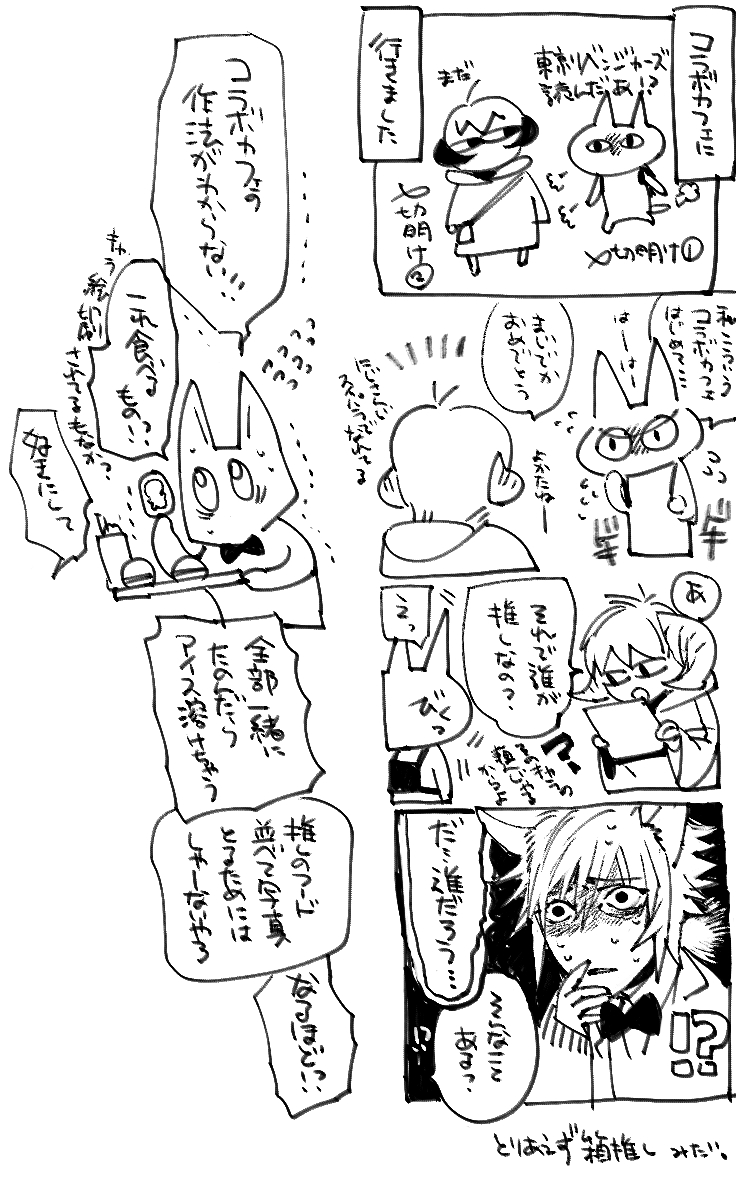 コラボカフェに
行きました
東京リベンジャーズ
読んだあ!?
まだ
〆切明け①
〆切明け②
私こういう
コラボカフェ
はじめて…
はーはー
ドキ
ドキ
まじでか
おめでとう
よかたねー
あ
それで誰が
推しなの?
えっ
びくっ
だ…誰だろう…
!?
そんなこと
ある?
!?
とりあえず箱推しみたい。
コラボカフェの
作法がわからない…
これ食べる
もの!?
きゅう
絵印刷
されてるもなか?
好きにして
全部一緒に
たのんだら
アイス溶けちゃう
推しのフード
並べて写真
とるためには
しゃーないやろ
なるほど…